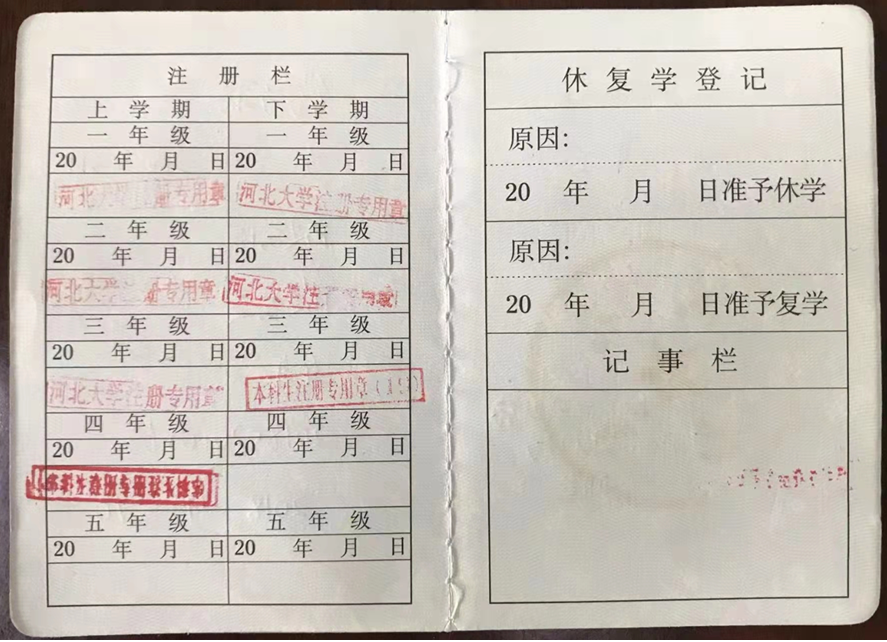 注 册 栏
上 学 期 下 学 期
一 年 级 一 年 级
20 年 月 日 20 年 月 日
河北大学 册专用章 河北大学注册专用章
二 年 级 二 年 级
20 年 月 日 20 年 月 日
河北大学 册专用章 河北大学注
三 年 级 三 年 级
20 年 月 日 20 年 月 日
河北大学注册专用章 本科生注册专用章
四 年 级 四 年 级
20 年 月 日 20 年 月 日
本科生注册专用章
五 年 级 五 年 级
20 年 月 日 20 年 月 日
休 复 学 登 记
原因:
20 年 月 日准予休学
原因:
20 年 月 日准予复学
记 事 栏